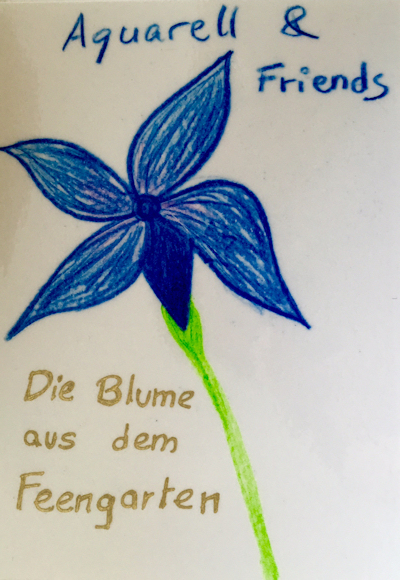 Aquarell &
Friends
Die Blume
aus dem
Feengarten